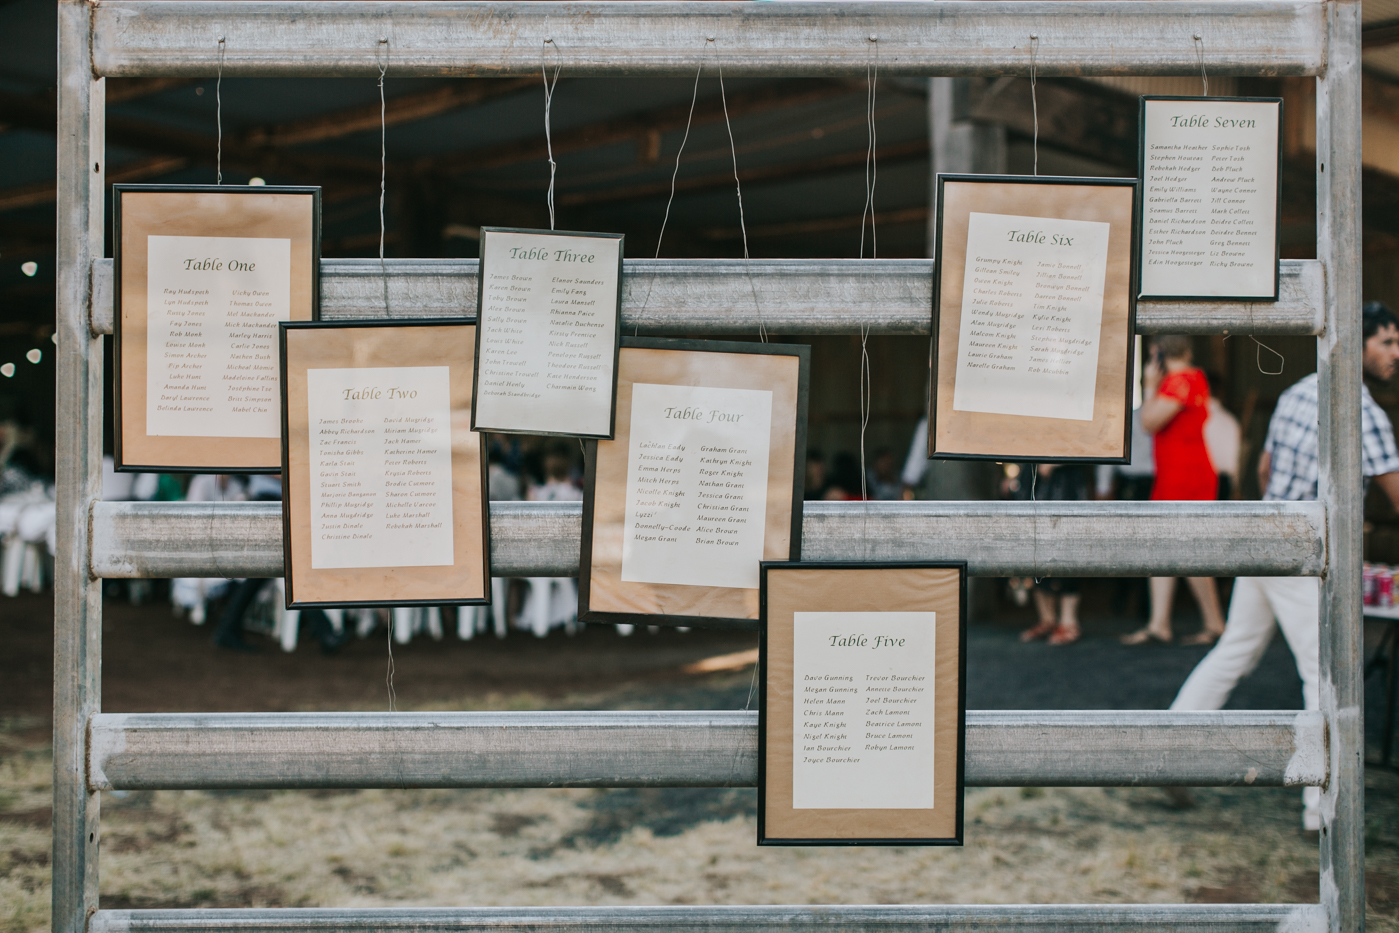 Table One
Ray Hudspeth
Lyn Hudspeth
Rusty Jones
Fay Jones
Rob Monk
Louise Monk
Simon Archer
Pip Archer
Luke Hunt
Amanda Hunt
Daryl Lawrence
Belinda Lawrence
Vicky Owen
Thomas Owen
Mel Machander
Mick Machander
Marley Harris
Carlie Jones
Nathan Bush
Micheal Moore
Madeleine
Josephine
Dris Simpson
Mabel Chin
Table Two
James Brooke
Abbey Richardson
Zac Francis
Tanisha Gibbs
Karla Stait
Gavin Stait
Stuart Smith
Marjorie
Phillip Mugridge
Anna Mugridge
Justin Dinale
Christine Dinale
David Mugridge
Miriam Mugridge
Jack Hamer
Katherine Hamer
Peter Roberts
Krysia Roberts
Brodie
Sharon
Michelle
Luke Marshall
Rebekah Marshall
Table Three
James Brown
Karen Brown
Toby Brown
Alex Brown
Sally Brown
Jack White
Louis White
Karen Lee
John Tidswell
Christine Tidswell
Daniel Henly
Deborah Standbridge
Elanor Saunders
Emily Fang
Laura Mansell
Rhianna Paice
Natalie
Kirsty
Nick Russell
Penelope Russell
Theodore Russell
Kate Henderson
Charmain Wong
Table Four
Lachlan Eady
Jessica Eady
Emma Horps
Mitch Horps
Nicolle Knight
Jacob Knight
Lyzzi
Donnelly-Coode
Megan Grant
Graham Grant
Kathryn Knight
Roger Knight
Nathan Grant
Jessica Grant
Christian Grant
Maureen Grant
Alice Brown
Brian Brown
Table Five
Dave Gunning
Megan Gunning
Helen Mann
Chris Mann
Kaye Knight
Nigel Knight
Ian Bourchier
Joyce Bourchier
Trevor Bourchier
Annette Bourchier
Joel Bourchier
Zach Lamont
Beatrice Lamont
Bruce Lamont
Robyn Lamont
Table Six
Grumpy Knight
Gillian Smiley
Owen Knight
Charles Roberts
Julie Roberts
Wendy Mugridge
Alan Mugridge
Malcom Knight
Maureen Knight
Laurie Graham
Narelle Graham
Jamie Bonnell
Jillian Bonnell
Bronwyn Bonnell
Darren Bonnell
Tim Knight
Kylie Knight
Lexi Roberts
Stephen Mugridge
Sarah Mugridge
James
Rob
Table Seven
Samantha Heather
Stephen
Rebekah Hedger
Joel Hedger
Emily Williams
Gabriella Barrett
Seamus Barrett
Daniel Richardson
Esther Richardson
John Pluck
Jessica Hoogesteger
Edin Hoogesteger
Sophie Tosh
Peter Tosh
Deb Pluck
Andrew Pluck
Wayne Connor
Jill Connor
Mark Collett
Deidre Collett
Deirdre Bennett
Greg Bennett
Liz Browne
Richy Browne